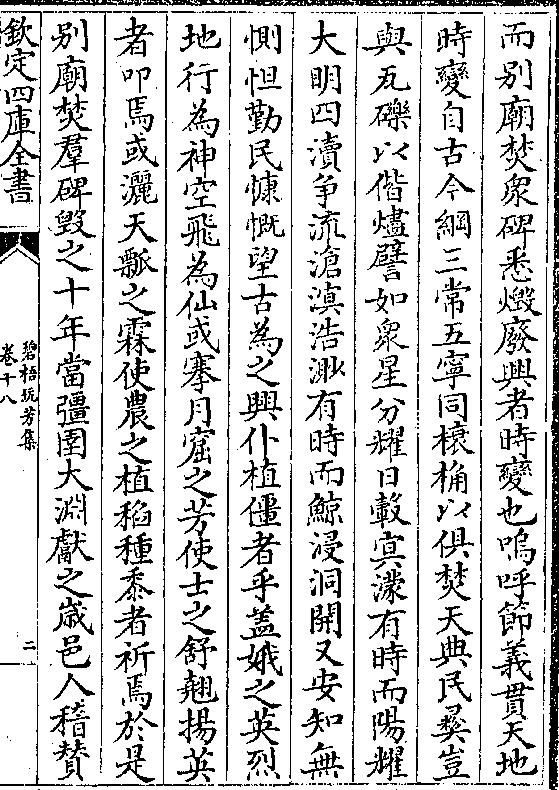 而别廟焚衆碑悉燬廢興者時變也嗚呼節義貫天地
時變自古今綱三常五寧同榱桷以俱焚天典民彛豈
與瓦礫以偕燼譬如衆星分耀日㲄㝠濛有時而陽耀
大明四瀆争流滄溟浩渺有時而鯨浸洞開又安知無
惻怛勤民慷慨望古為之興仆植僵者乎蓋娥之英烈
地行為神空飛為仙或搴月窟之芳使士之舒翹揚英
者叩焉或灑天瓢之霖使農之植稻種黍者祈焉於是
别廟焚羣碑毁之十年當彊圉大淵獻之嵗邑人稽賛
欽定四庫全書
碧梧玩芳集
卷十八
二